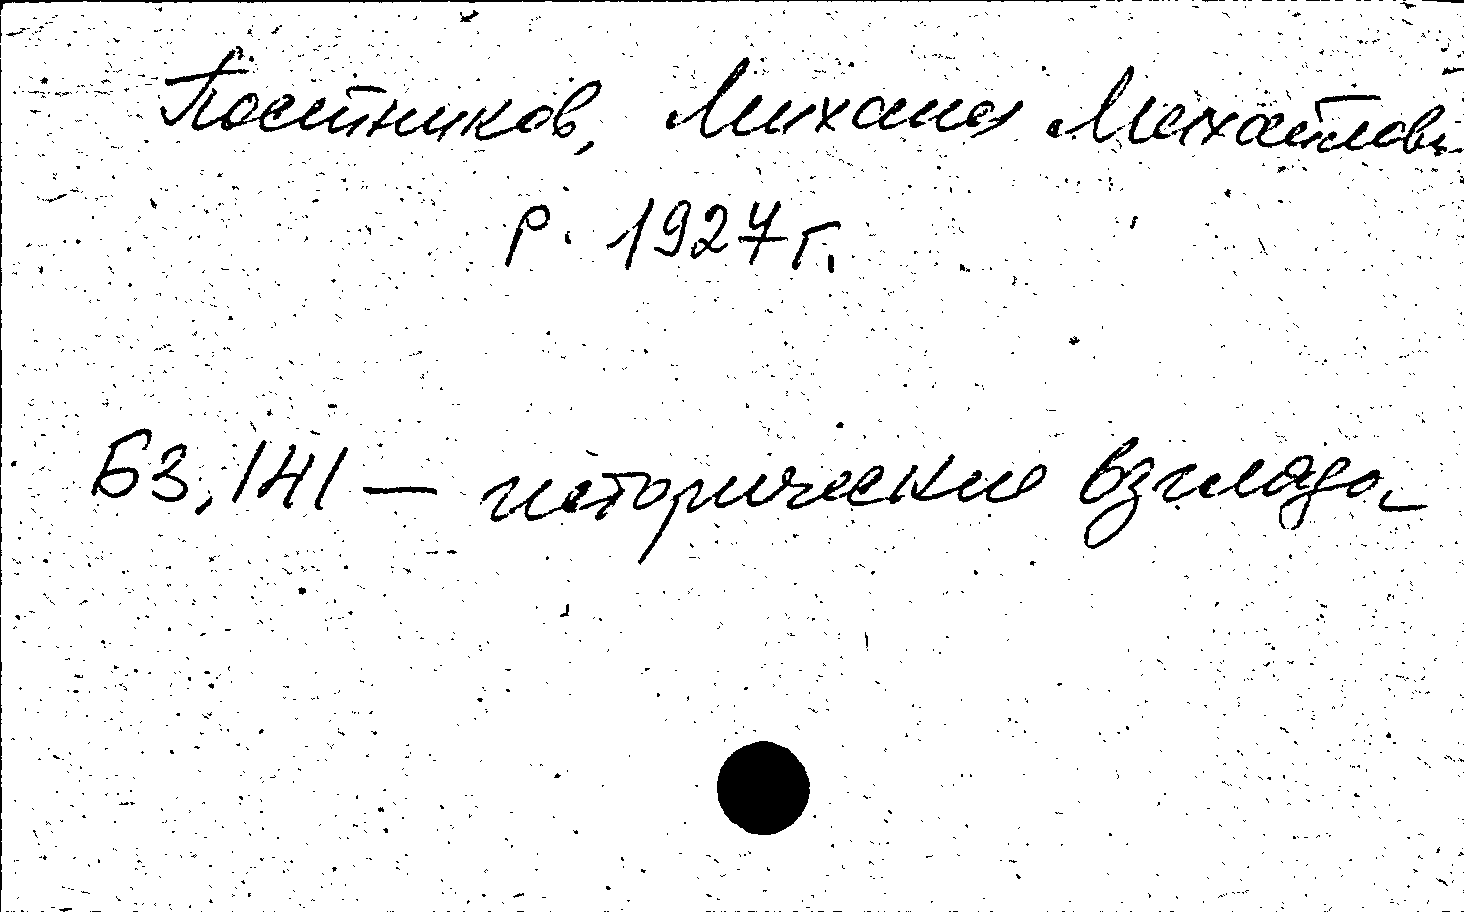 Постников, Михаил Михайлови
р. 1927 г.
Б3,141 — исторические взгляды